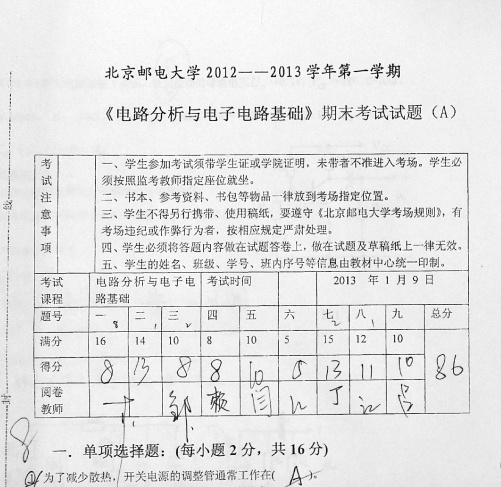 北京邮电大学 2012——2013 学年第一学期
《电路分析与电子电路基础》期末考试试题（A）
考试注意事项
一、学生参加考试须带学生证或学院证明，未带者不准进入考场。学生必
须按照监考教师指定座位就坐。
二、书本、参考资料、书包等物品一律放到考场指定位置。
三、学生不得另行携带、使用稿纸，要遵守《北京邮电大学考场规则》，有
考场违纪或作弊行为者，按相应规定严肃处理。
四、学生必须将答题内容做在试题答卷上，做在试题及草稿纸上一律无效。
五、学生的姓名、班级、学号、班内序号等信息由教材中心统一印制。
考试 电路分析与电子电 考试时间 2013 年 1 月 9 日
课程 路基础
题号 一 8 二 1 三 2 四 五 六 七 2 八 1 九 总分
满分 16 14 10 8 10 5 15 12 10
得分 8 13 8 8 10 5 13 11 10 86
阅卷 赖 闫 丁
教师
线
封
8
一．单项选择题：(每小题 2 分，共 16 分)
为了减少散热，开关电源的调整管通常工作在( A )。